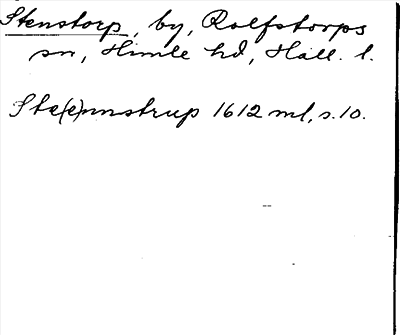 Stenstorp, by, Rolfstorps
sn, Himle hd, Hall. l.
Ste(e)nnstrup 1612 ml, s. 10.